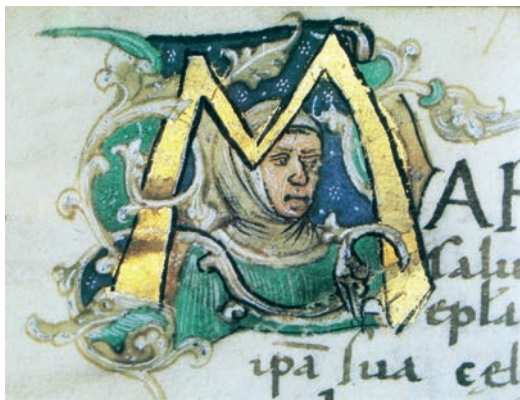 MAR
ſalu
epła
ipā ſua cel